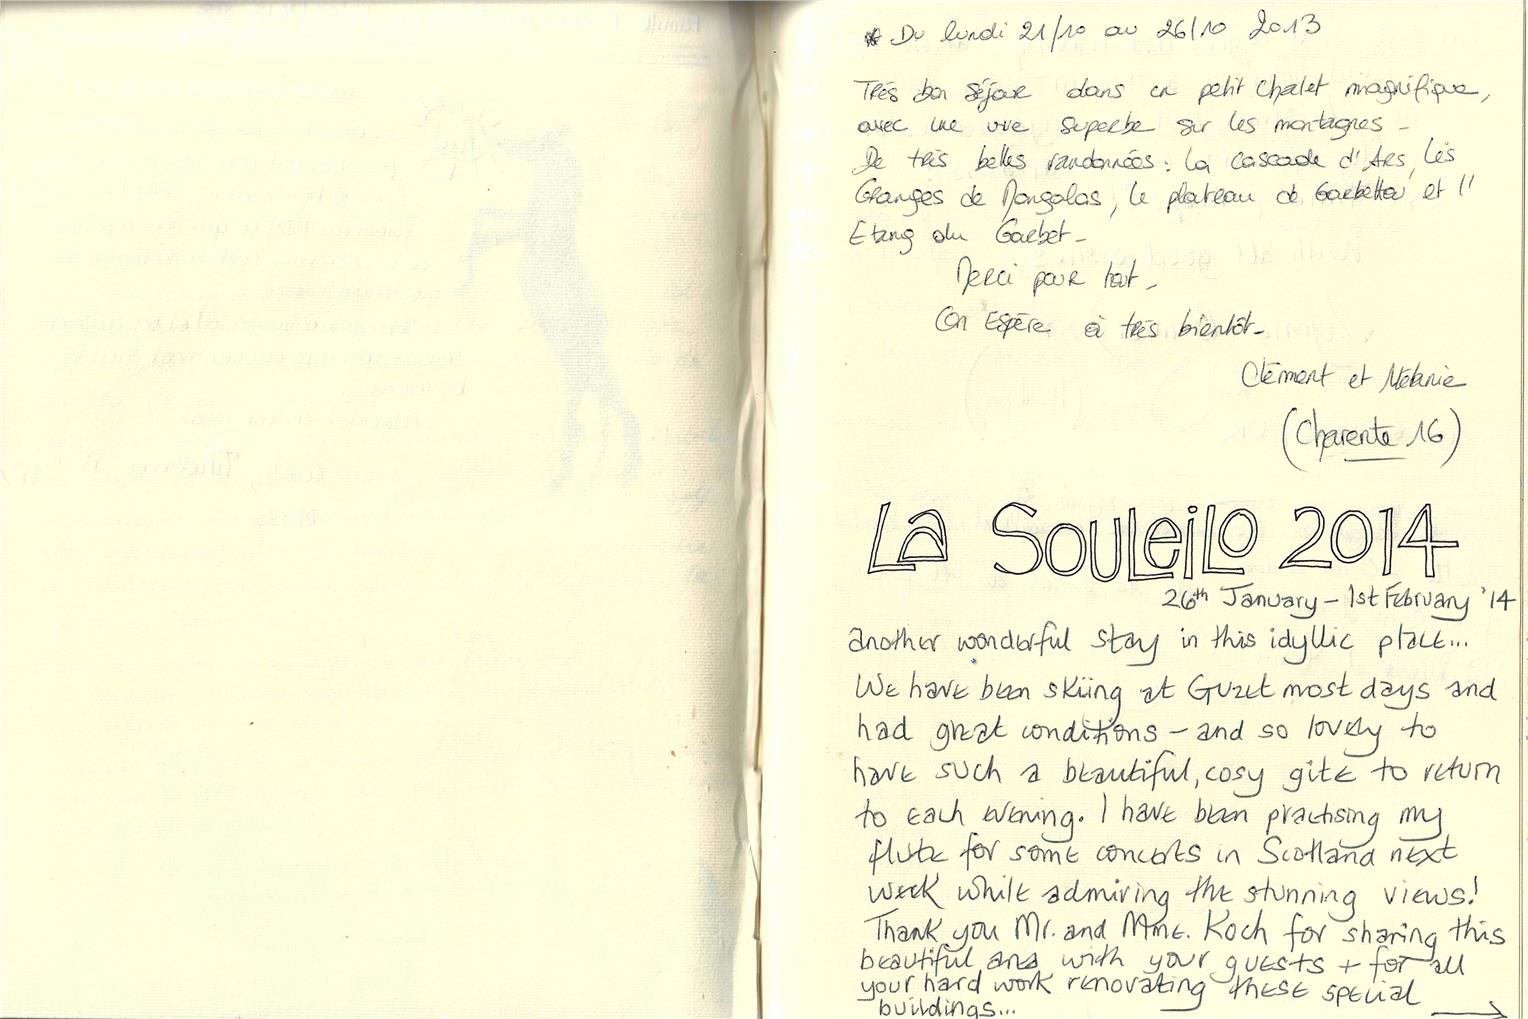 * Du lundi 21/10 au 26/10 2013
Très bon séjour dans un petit chalet magnifique,
avec une vue superbe sur les montagnes -
De très belles randonnées : la cascade d'Ars, les
Granges de Mongolas, le plateau de Garbettou et l'
Etang du Garbet -
Merci pour tout -
On Espère à très bientôt -
Clément et Mélanie
(Charente 16)
LA SOULEILO 2014
26th January - 1st February '14
another wonderful stay in this idyllic place...
We have been skiing at Guzet most days and
had great conditions - and so lovely to
have such a beautiful, cosy gite to return
to each evening. I have been practising my
flute for some concerts in Scotland next
week while admiring the stunning views!
Thank you Mr. and Mme. Koch for sharing this
beautiful area with your guests + for all
your hard work renovating these special
buildings...